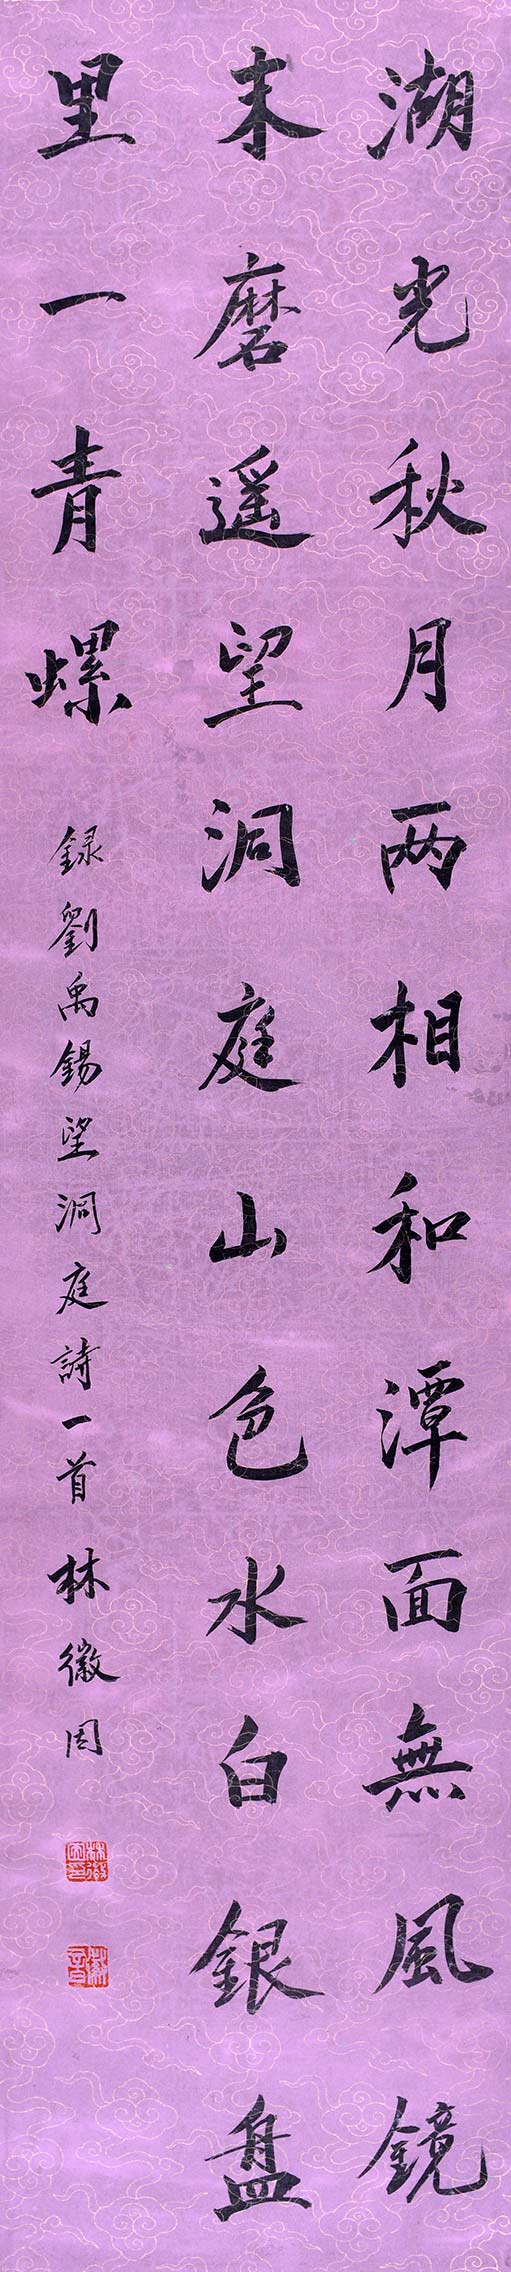 湖光秋月两相和潭面無風鏡
未磨遥望洞庭山色水白銀盤
里一青螺
録劉禹錫望洞庭詩一首 林徽因